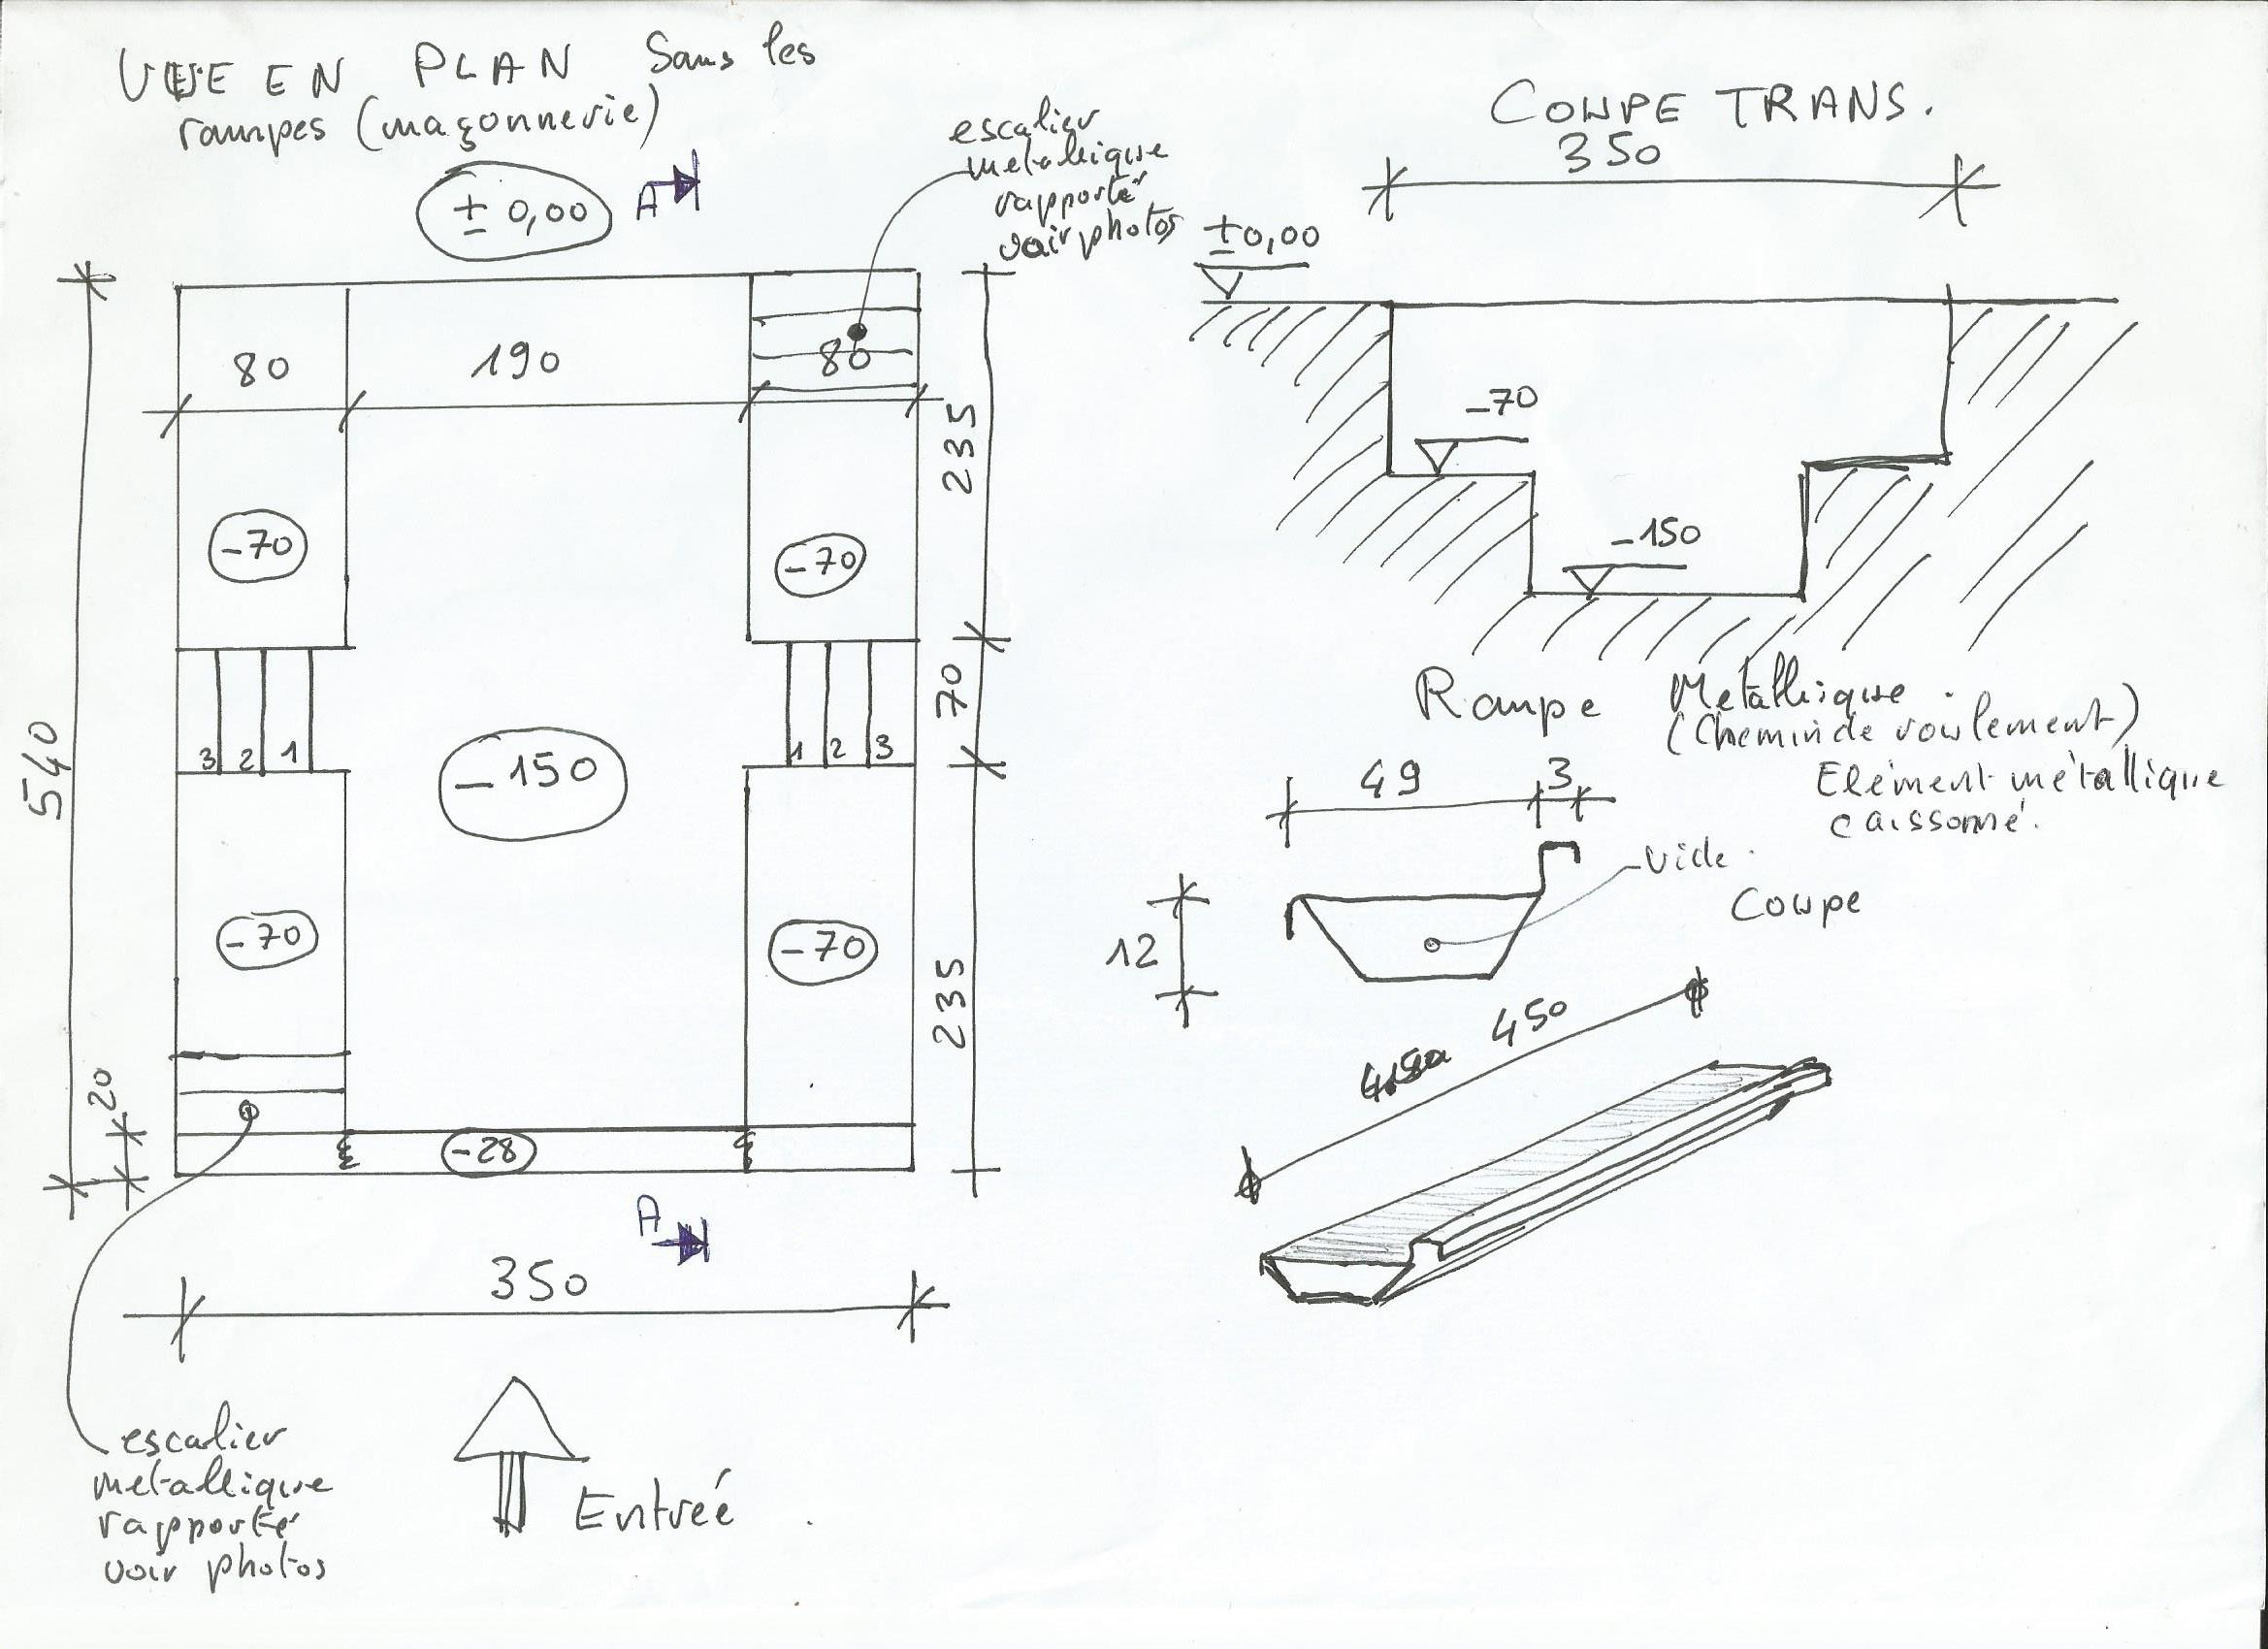 VUE EN PLAN Sans les
rampes (maçonnerie)
± 0,00
A
escalier
metallique
rapporté
voir photos
80
190
80
235
-70
-70
70
3 2 1
1 2 3
-150
540
-70
-70
235
20
-28
A
350
escalier
metallique
rapporté
voir photos
Entreé
COUPE TRANS.
350
±0,00
-70
-150
Rampe Metallique.
(Chemin de roulement)
Elément métallique
caissonné.
49
3
vide.
Coupe
12
450